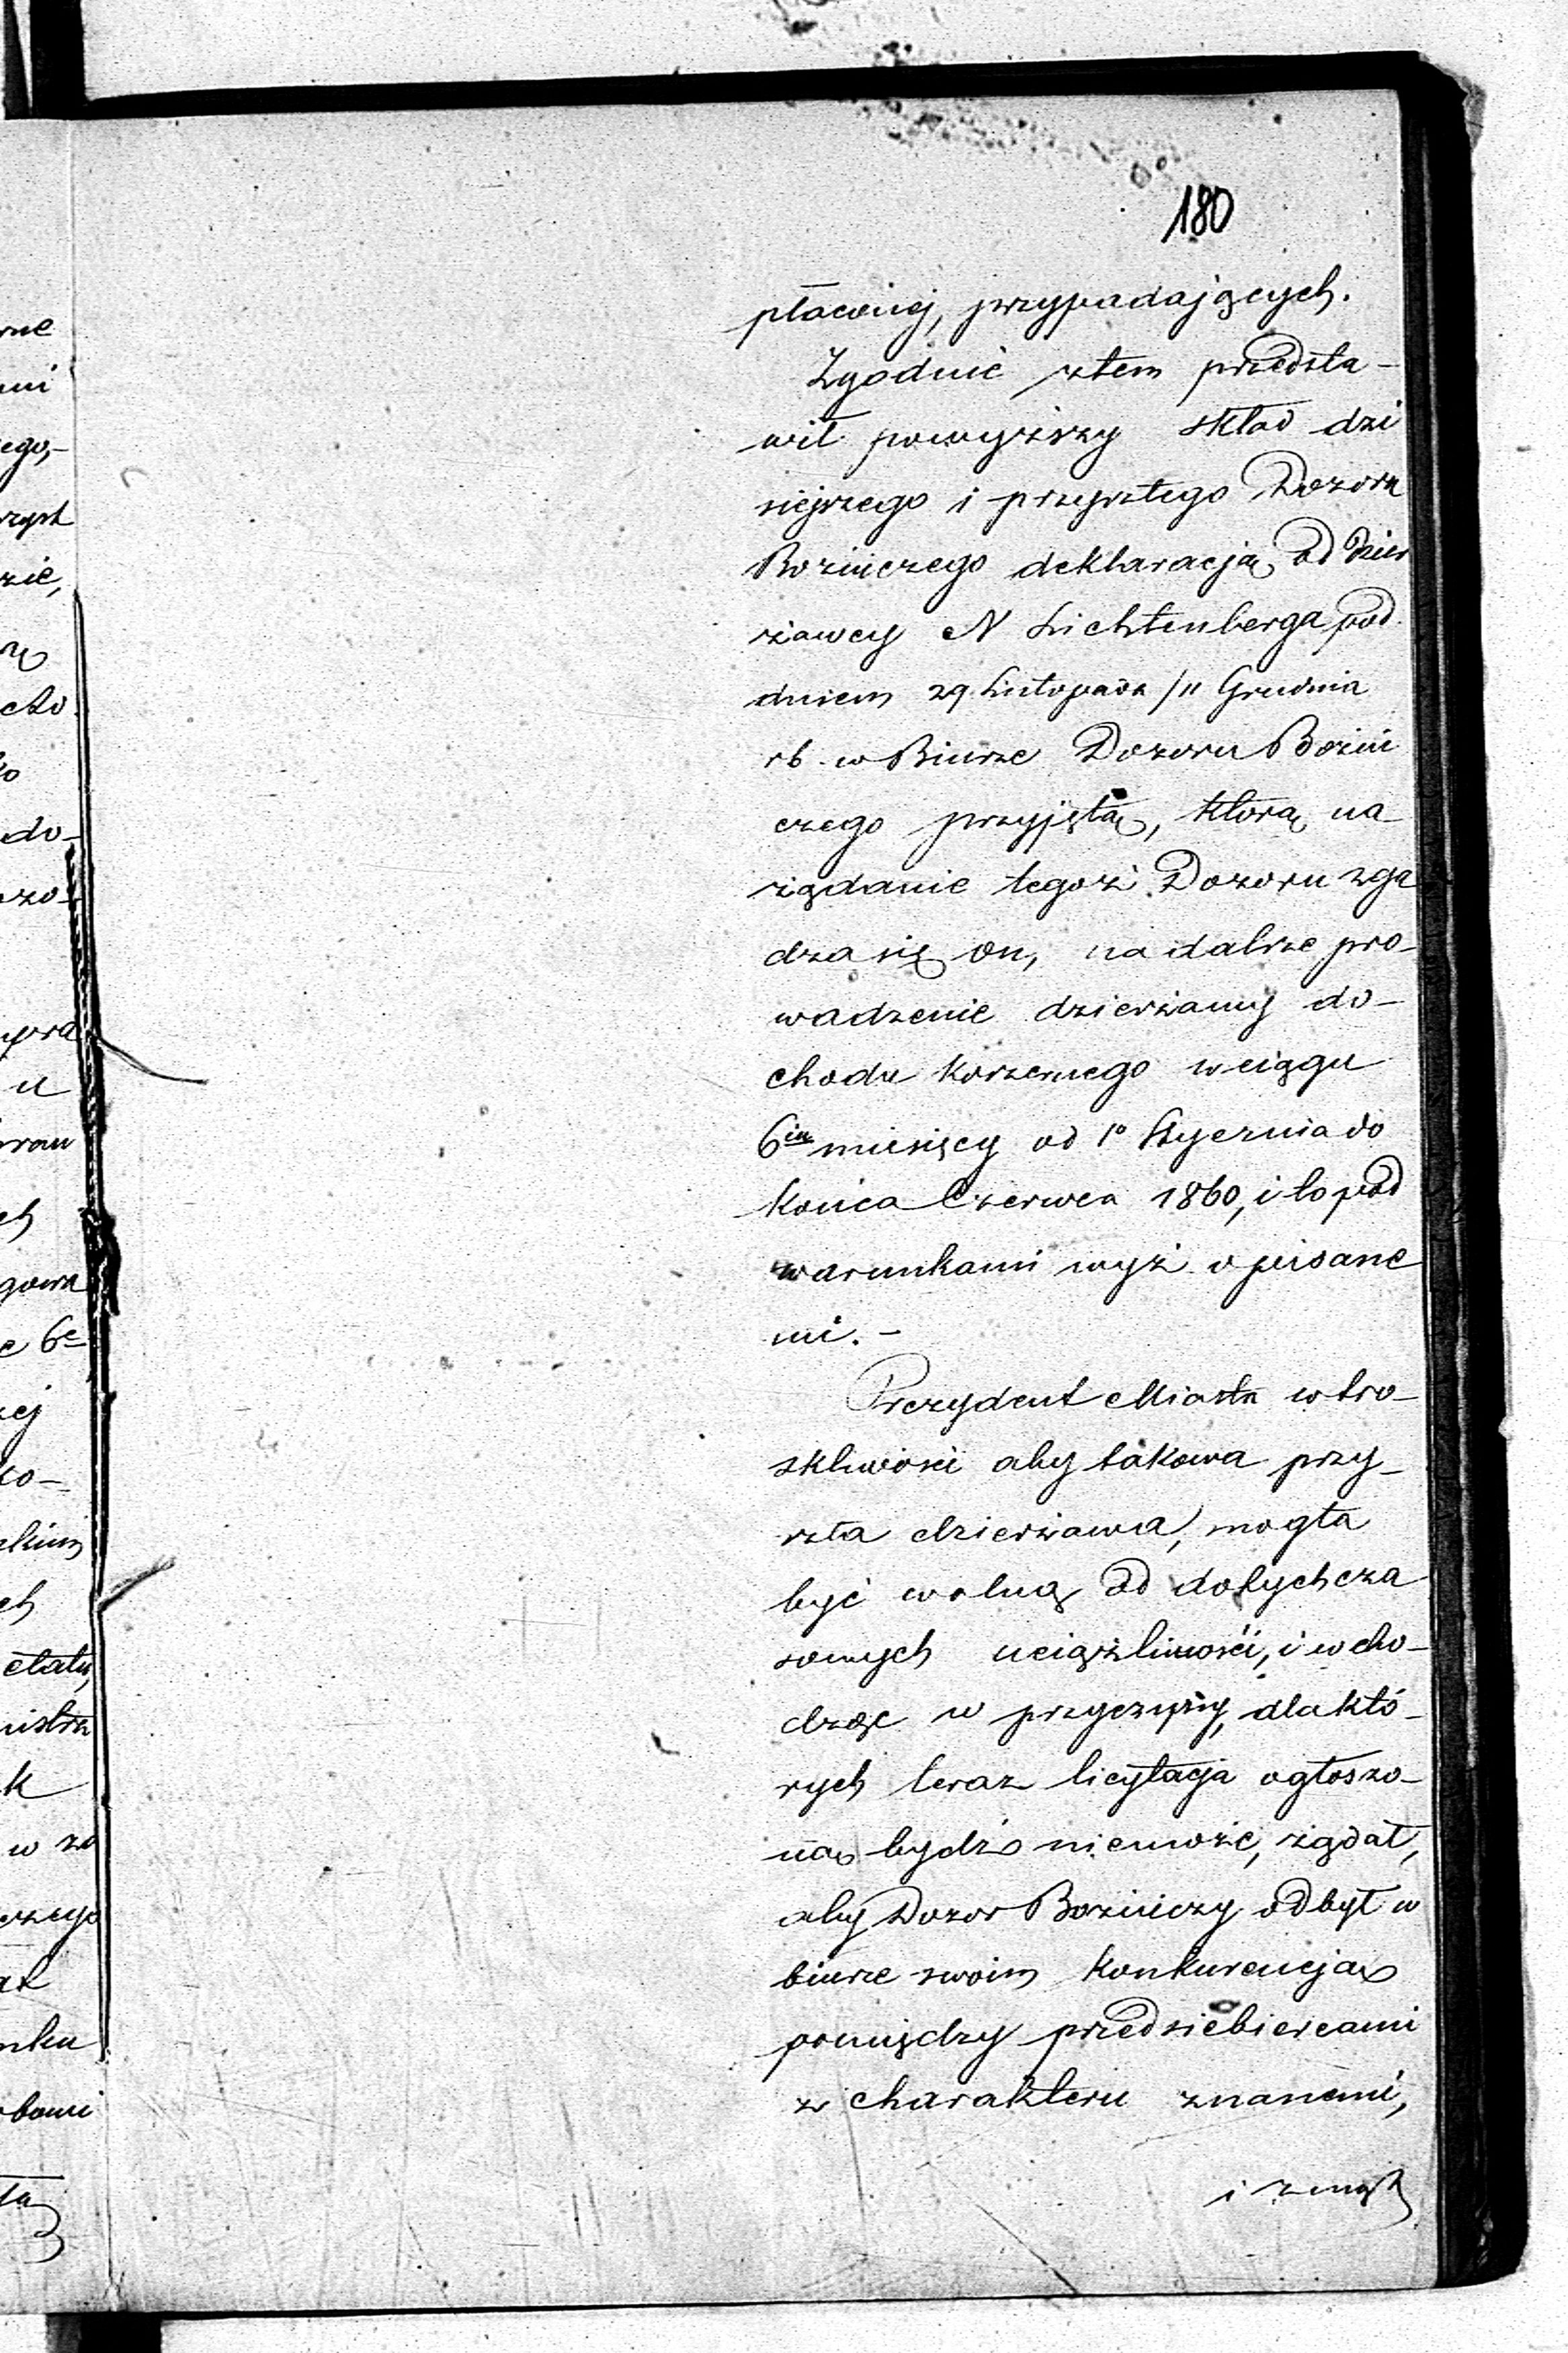 180
płaconej, przypadających.
Zgodnie ztem przedsta-
wił powyższy skład dzi
siejszego i przyszłego Dozoru
Bożniczego deklaracją od dzier
żawcy N Lichtenberga pod
dniem 29 Listopada / 11 Grudnia
rb. w Biurze Dozoru Bożni
czego przyjętą, którą na-
żądanie tegoż Dozoru zga
dza się on, na dalsze pro-
wadzenie dzierżawy do-
chodu koszernego wciągu
6ciu miesięcy od 1o Stycznia do
końca Czerwca 1860, i to pod
warunkami wyż opisane
mi. -
Prezydent Miasta w tro-
skliwości aby takowa przy-
szła dzierżawa, mogła
być wolną od dotychcza
sowych uciążliwości, i wcho-
dząc w przyczyny, dla któ-
rych teraz licytacja ogłoszo-
ną bydź niemoże, żądał,
aby Dozór Bożniczy odbył w
biurze swoim Konkurencją
pomiędzy przedsiebiercami
z charakteru znanemi,
i
rne
ego,-
zie,
do-
u
ch
e 6e
ej
ko-
ch
etatu,
k
w
czego